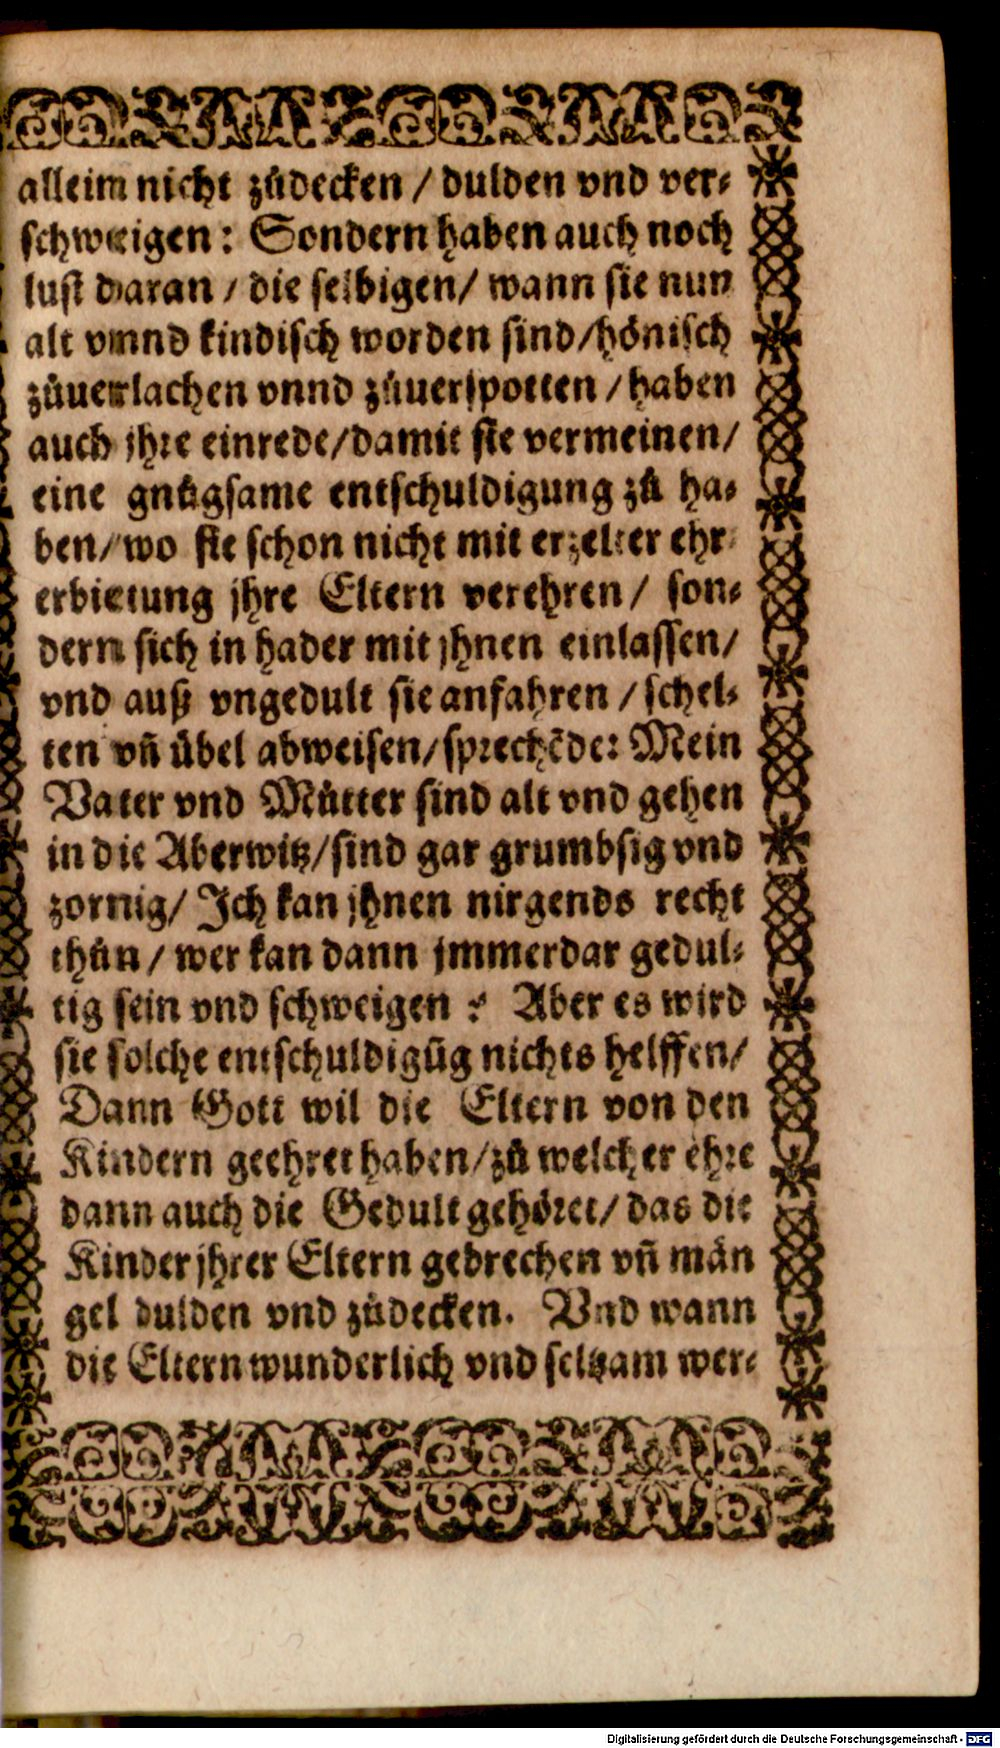 allein nicht zůdecken / dulden vnd ver⸗
schweigen: Sondern haben auch noch
lust daran / die selbigen / wann sie nun
alt vnnd kindisch worden sind / hönisch
zůuerlachen vnnd zůuerspotten / haben
auch jhre einrede / damit sie vermeinen /
eine gnůgsame entschuldigung zů ha⸗
ben / wo sie schon nicht mit erzelter ehr⸗
erbietung jhre Eltern verehren / son⸗
dern sich in hader mit jhnen einlassen /
vnd auß vngedult sie anfahren / schel⸗
ten vñ übel abweisen / sprechẽde: Mein
Vater vnd Můtter sind alt vnd gehen
in die Aberwitz / sind gar grumbsig vnd
zornig / Ich kan jhnen nirgends recht
thůn / wer kan dann jmmerdar gedul⸗
tig sein vnd schweigen ? Aber es wird
sie solche entschuldigũg nichts helffen /
Dann Gott wil die Eltern von den
Kindern geehret haben / zů welcher ehre
dann auch die Gedult gehöret / das die
Kinder jhrer Eltern gebrechen vñ män
gel dulden vnd zůdecken. Vnd wann
die Eltern wunderlich vnd seltzam wer⸗
Digitalisierung gefördert durch die Deutsche Forschungsgemeinschaft - DFG